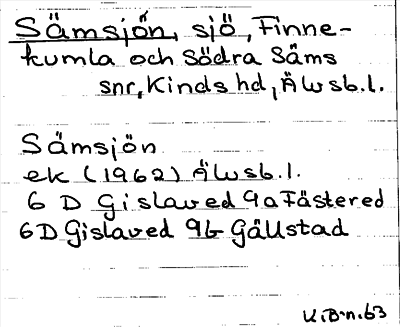 Sämsjön, sjö, Finne-
kumla och Södra Säms
snr, Kinds hd, Älvsb.l.
Sämsjön
ek (1962) Älvsb.l.
6 D Gislaved 9a Fästered
6D Gislaved 9b Gällstad
K.B-n.63